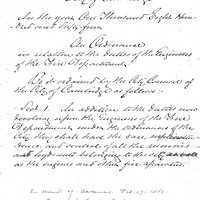 City of Cambridge
In the year One Thousand Eight Hun-
dred and Fifty four
An Ordinance
in relation to the duties of the Engineers
of the Fire Department.
Be it ordained by the City Council of
the City of Cambridge as follows:
Sect. 1. In addition to the duties now
devolving upon the Engineers of the Fire
Department, under the ordinances of the
City, they shall have the care, superinten-
dence and control of all the reservoirs
and hydrants belonging to the city
as the engines and other fire apparatus.